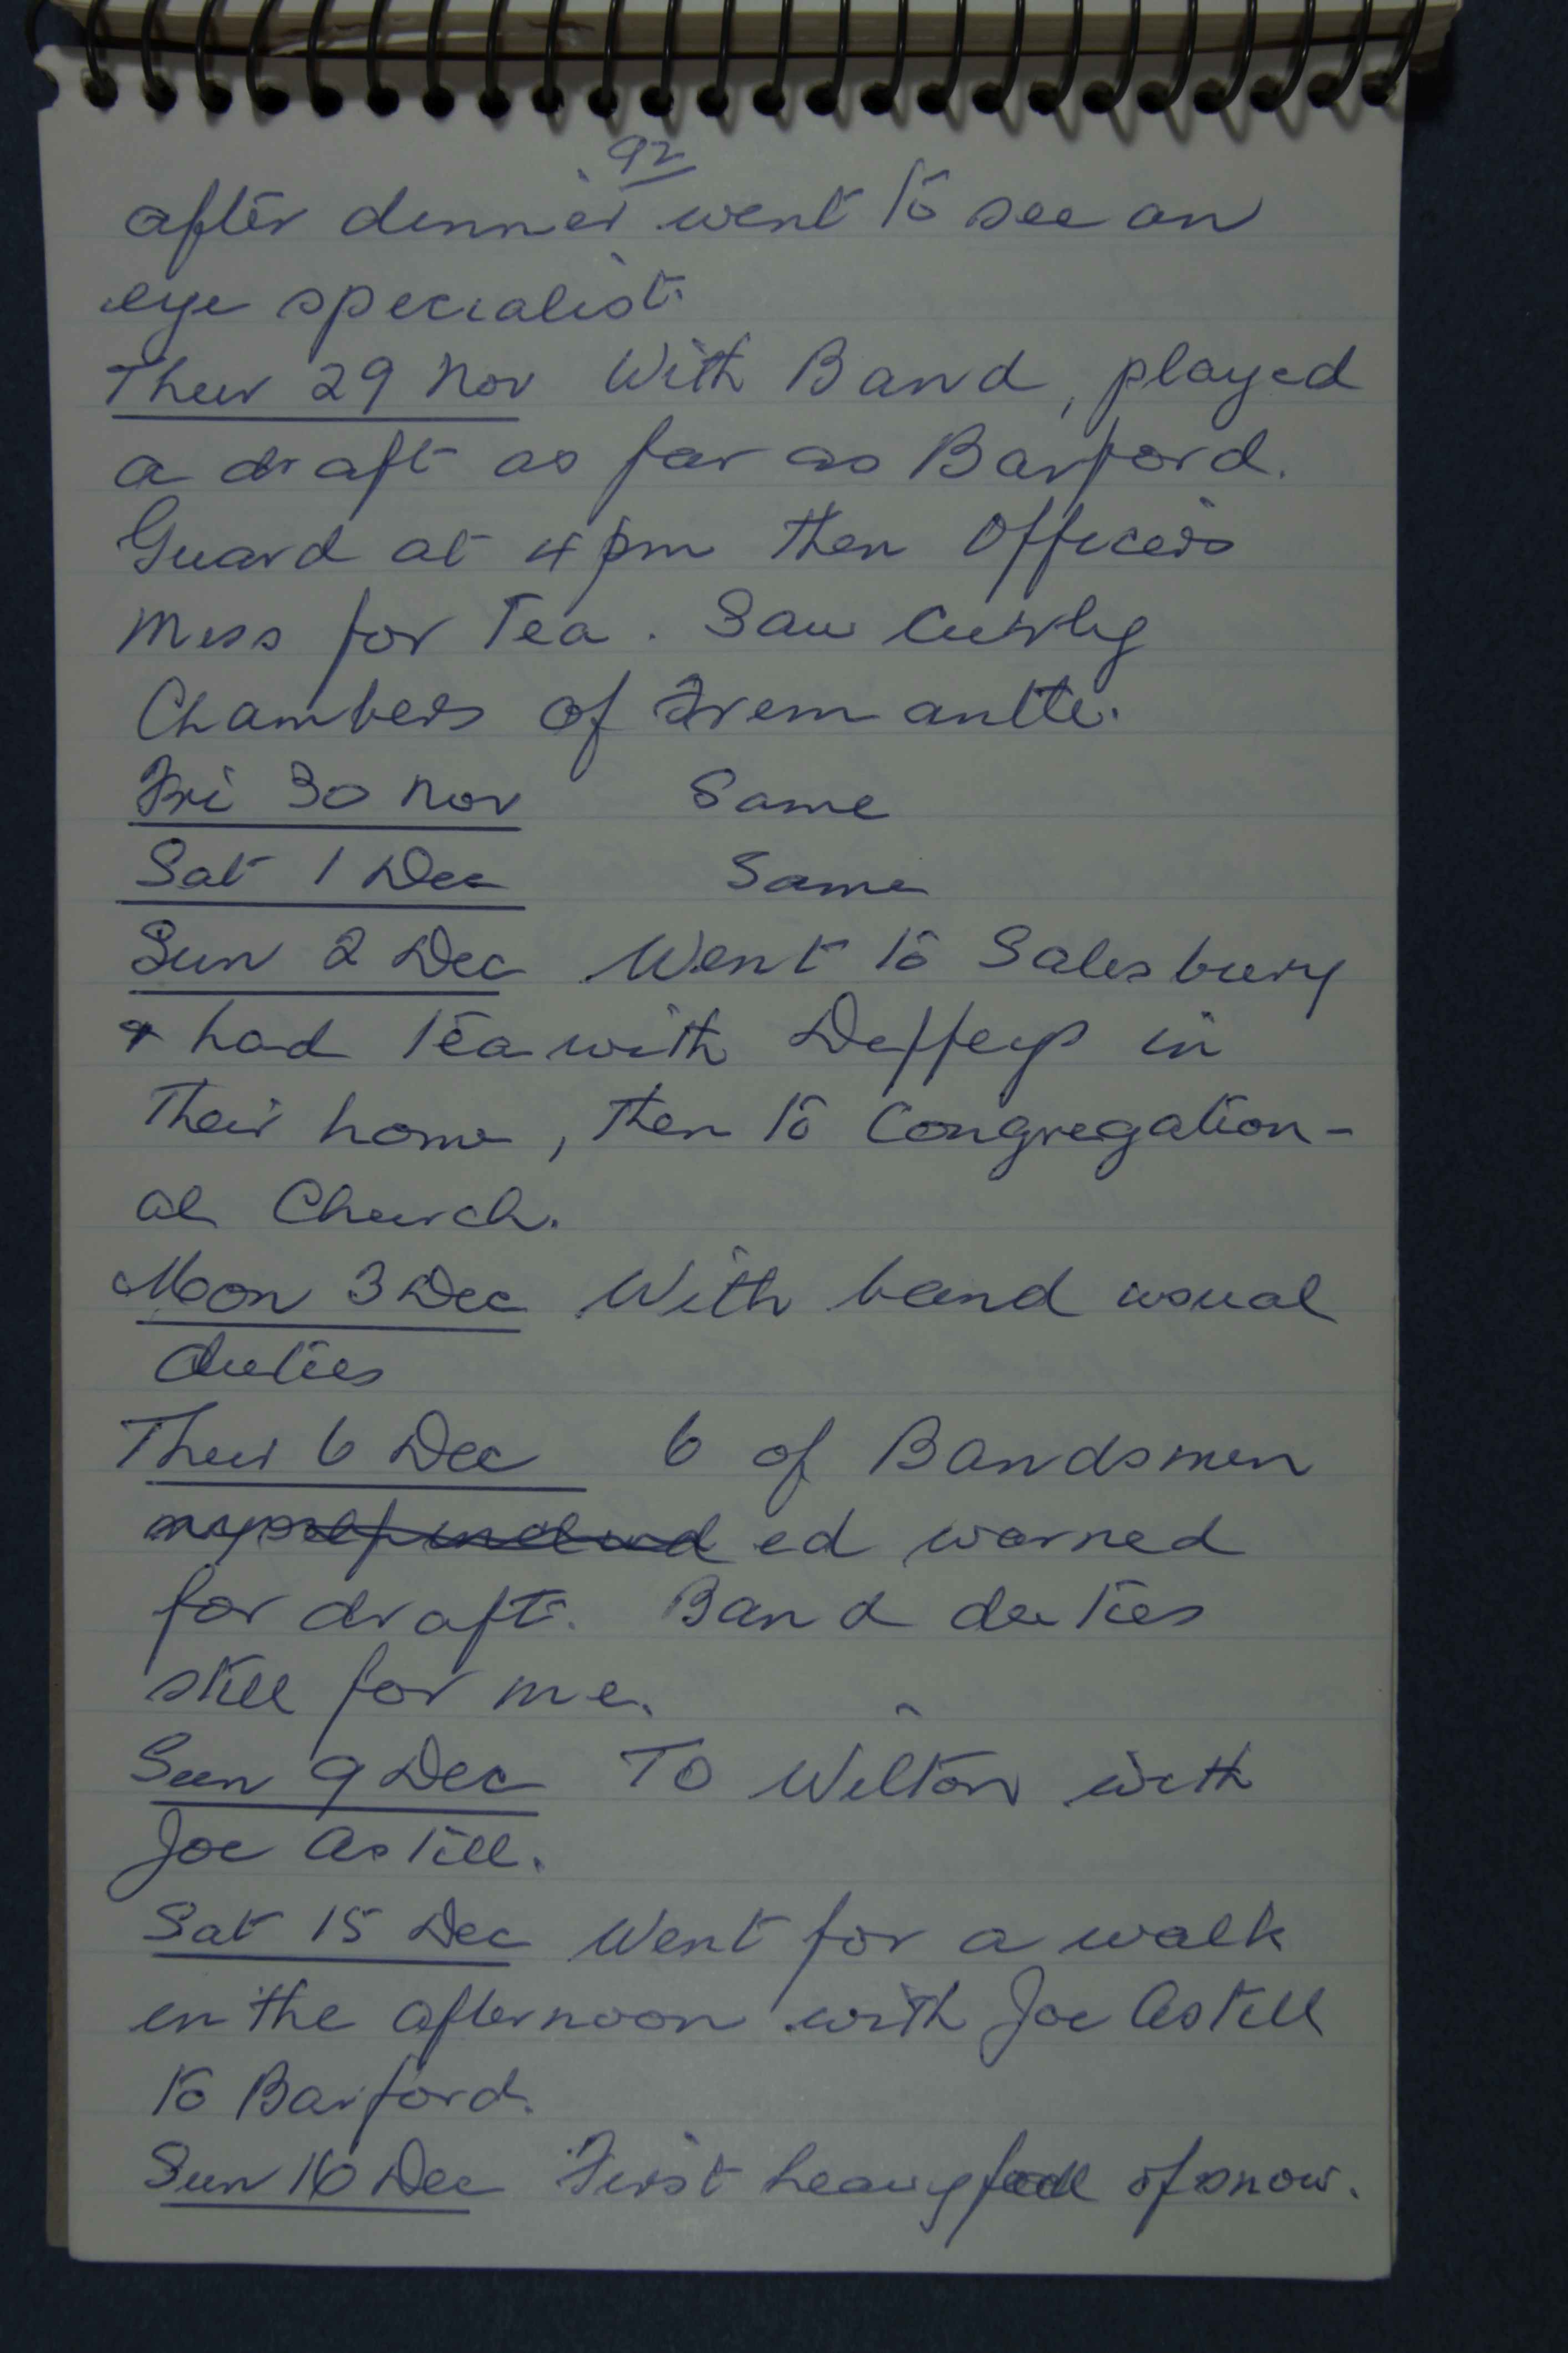 92
after dinner went to see an
eye specialist.
Thur 29 Nov With Band, played
a draft as far as Barford.
Guard at 4 pm then Officers
Mess for Tea. Saw Curly
Chambers of Fremantle.
Fri 30 Nov Same
Sat 1 Dec Same
Sun 2 Dec Went to Salisbury
& had Tea with Deffeys in
Their home, then to Congregation-
al Church.
Mon 3 Dec With band usual
duties
Thur 6 Dec 6 of Bandsmen
myself includ ed warned
for draft. Band duties
still for me.
Sun 9 Dec To Wilton with
Joe Astill.
Sat 15 Dec Went for a walk
in the afternoon with Joe Astill
to Barford.
Sun 16 Dec First heavy fall of snow.